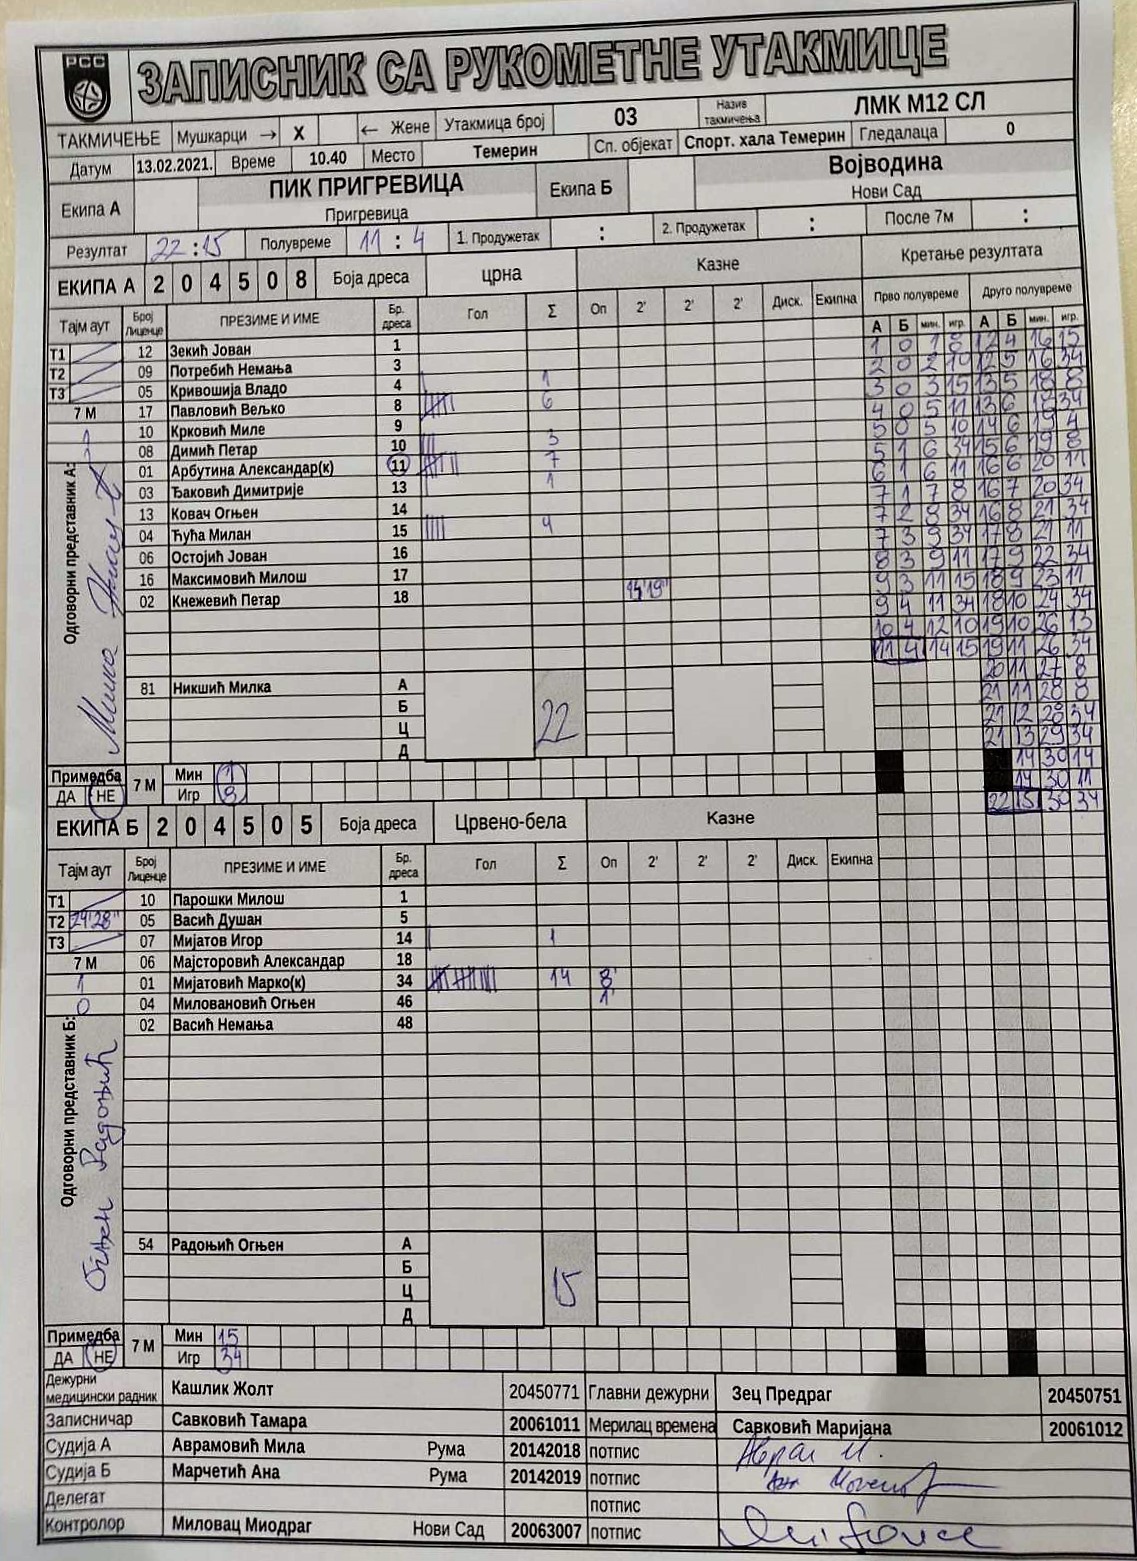 РСС
ЗАПИСНИК СА РУКОМЕТНЕ УТАКМИЦЕ
ТАКМИЧЕЊЕ Мушкарци → X ← Жене Утакмица број 03 Назив такмичења ЛМК М12 СЛ
Датум 13.02.2021. Време 10.40 Место Темерин Сп. објекат Спорт. хала Темерин Гледалаца 0
Екипа А ПИК ПРИГРЕВИЦА Екипа Б Војводина
Пригревица Нови Сад
Резултат 22:15 Полувреме 11:4 1. Продужетак : 2. Продужетак : После 7м :
ЕКИПА А 2 0 4 5 0 8 Боја дреса црна Казне Кретање резултата
Прво полувреме Друго полувреме
Тајм аут Број Лиценце ПРЕЗИМЕ И ИМЕ Бр. дреса Гол Σ Оп 2' 2' 2' Диск. Екипна А Б мин. игр. А Б мин. игр.
Т1 12 Зекић Јован 1 1 0 1 8 12 4 16 15
Т2 09 Потребић Немања 3 2 0 2 10 12 5 16 34
Т3 05 Кривошија Владо 4 1 3 0 3 15 13 5 18 8
7 М 17 Павловић Вељко 8 6 4 0 5 11 13 6 18 34
10 Крковић Миле 9 5 0 5 10 14 6 19 4
08 Димић Петар 10 3 5 1 6 34 15 6 19 8
01 Арбутина Александар(к) 11 7 6 1 6 11 16 6 20 11
03 Ђаковић Димитрије 13 1 7 1 7 8 16 7 20 34
13 Ковач Огњен 14 7 2 8 34 16 8 21 34
04 Ћућа Милан 15 4 7 3 9 34 17 8 21 11
06 Остојић Јован 16 8 3 9 11 17 9 22 34
16 Максимовић Милош 17 9 3 11 15 18 9 23 11
02 Кнежевић Петар 18 9 4 11 34 18 10 24 34
10 4 12 10 19 10 26 13
11 4 14 15 19 11 26 34
20 11 27 8
81 Никшић Милка А 21 11 28 8
Б 22 21 12 28 34
Ц 21 13 29 34
Д 14 30 14
Примедба 7 М Мин 1 14 30 11
ДА НЕ Игр 8 22 15 30 34
Одговорни представник А:
ЕКИПА Б 2 0 4 5 0 5 Боја дреса Црвено-бела Казне
Тајм аут Број Лиценце ПРЕЗИМЕ И ИМЕ Бр. дреса Гол Σ Оп 2' 2' 2' Диск. Екипна
Т1 10 Парошки Милош 1
Т2 29'28" 05 Васић Душан 5
Т3 07 Мијатов Игор 14 1
7 М 06 Мајсторовић Александар 18
1 01 Мијатовић Марко(к) 34 14 8'
0 04 Миловановић Огњен 46 1'
02 Васић Немања 48
Одговорни представник Б: Огњен Радоњић
54 Радоњић Огњен А
Б
Ц 15
Д
Примедба 7 М Мин 15
ДА НЕ Игр 34
Дежурни медицински радник Кашлик Жолт 20450771 Главни дежурни Зец Предраг 20450751
Записничар Савковић Тамара 20061011 Мерилац времена Савковић Маријана 20061012
Судија А Аврамовић Мила Рума 20142018 потпис
Судија Б Марчетић Ана Рума 20142019 потпис
Делегат потпис
Контролор Миловац Миодраг Нови Сад 20063007 потпис